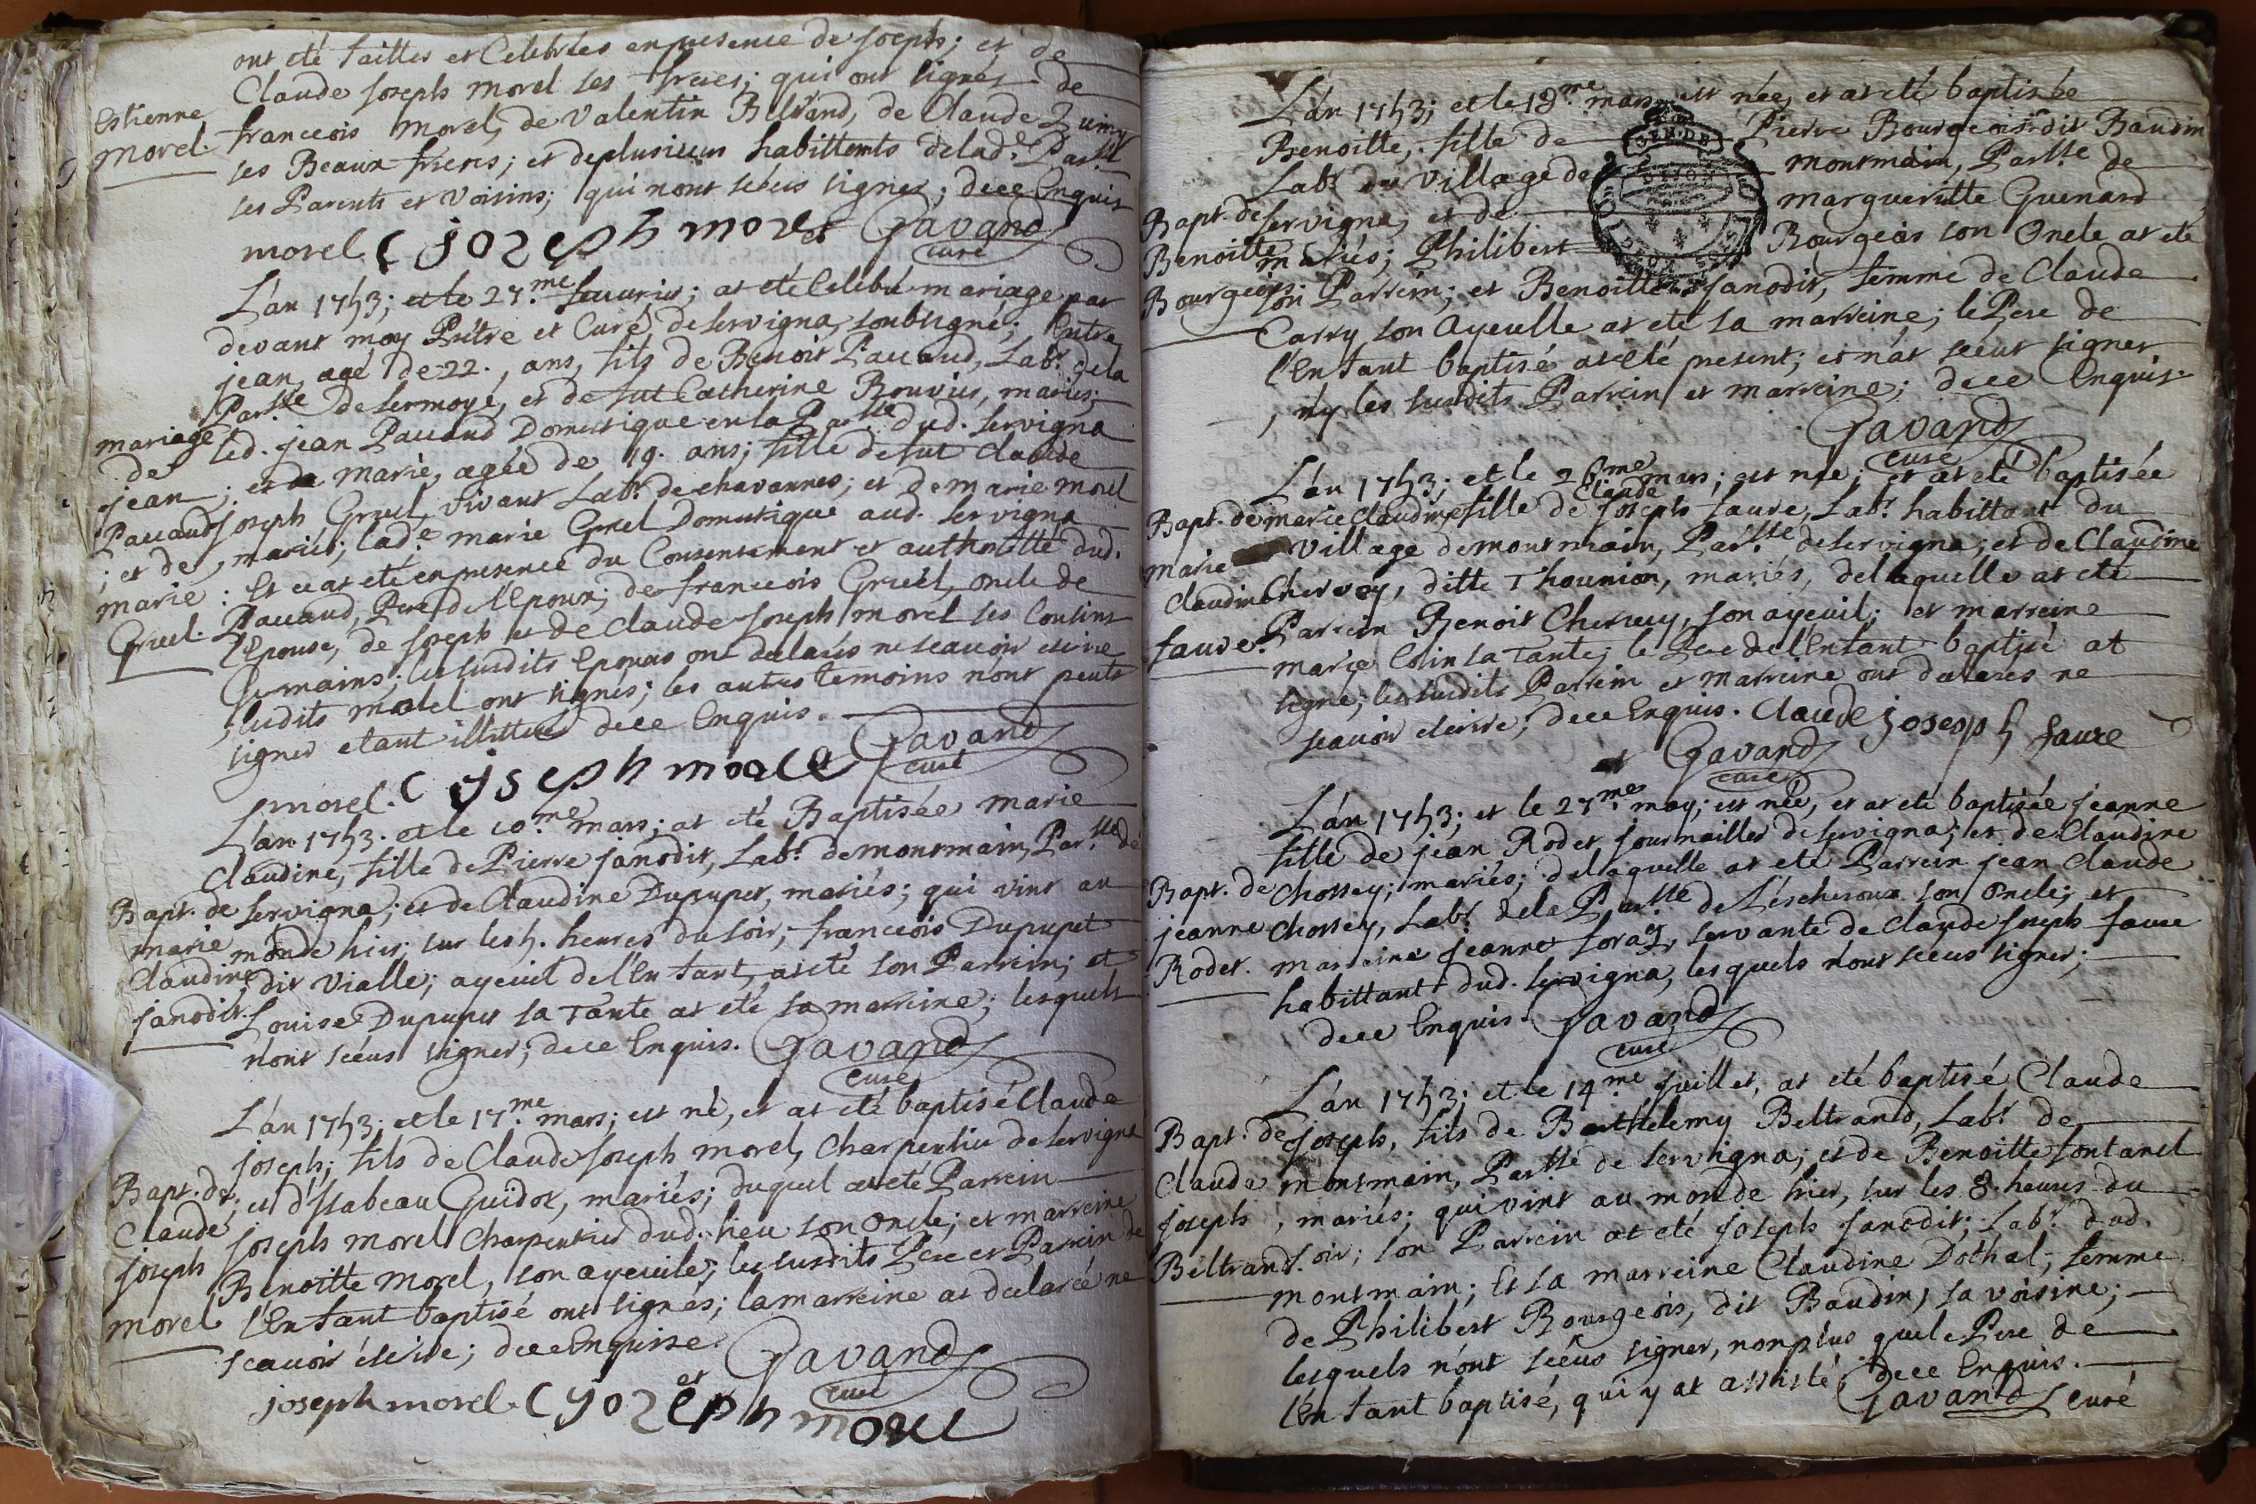 ont eté faittes et Celebrées enpresence de joseph; et de
Claude joseph morel ses freres; qui ont signés de
Estienne
morel.
franceois morel, de Valentin Beltrand, de Claude
ses Beaux freres; et deplusieurs habittents delad.e Par.sse
ses Parents et Voisins; qui nont sceus signer; dece Enquis
morel. C joseph morel et Gavand
curé
L'an 1753; et le 27.me feuurier; at eté Celebré mariage par
devant moy Prêtre et Curé de servigna, soubsigné; Entre
jean, agé de 22., ans, fils de Benoit Pauaud, Lab.r dela
Par.sse de sermoyé, et de fut Catherine Bouvier, mariés;
led. jean Pauaud Domestique en la Par.sse dud. servigna
; et de marie, agée de 19. ans; fille de fut Claude
joseph Gruel, vivant Lab.r de chavannes; et de marie morel
, mariés; lad.e marie Gruel Domestique aud. servigna
: Et ce at eté enpresence du Consentement et authoritté dud.
Pauaud, Pere de l'Epoux; de franceois Gruel, oncle de
l'Epouse, de joseph et de Claude joseph morel ses Cousins
Germains; les susdits Epouxs ont dalarés ne sçauoir escrire
; susdits morel ont signés; les autres temoins n'ont peuts
signer etant illitterés dece Enquis.
mariage
de
jean
Pauaud
; et de
marie
Gruel.
morel. C joseph morel et Gavand
curé
L'an 1753. et le 10.me mars; at eté Baptisée marie
Claudine, fille de Pierre janodit, Lab.r de montmain, Par.sse de
servigna; et de Claudine Dupupet, mariés; qui vint au
monde hier, sur les 5. heures du soir; franceois Dupupet
dit Vialle; ayeuil de l'Enfant, at eté son Parrein; et
Louise Dupupet sa Tante at eté sa marreine; lesquels
n'ont sceus signer; dece Enquis. Gavand
curé
Bapt. de
marie
Claudine
janodit.
L'an 1753; et le 17.me mars; est né, et at eté baptisé Claude
joseph; fils de Claude joseph morel, Charpentier de servigna
; et d'Isabeau Guidot, mariés; duquel at eté Parrein
joseph morel Charpentier dud. lieu son Oncle; et marreine
Benoitte morel, son ayeuile; les susdits Pere et Parrein de
l'Enfant baptisé ont signés; la marreine at dalarée ne
sçauoir éscrire; dece Enquise. Gavand
curé
Bapt. de
Claude
joseph
morel
joseph morel. et C joseph morel
L'an 1753; et le 18.me mars est née, et at eté baptisée
Benoitte, fille de Pierre Bourgeois dit Baudin
Lab.r du Village de montmain, Par.sse de
servigna, et de margueritte Guenard
mariés; Philibert Bourgeois son Oncle at eté
son Parrein; et Benoitte janodit, femme de Claude
Carry, son Ayeulle at eté sa marreine; le Pere de
l'Enfant baptisé at eté present; et n'at sceut signer
, n'y les susdits Parrein et marreine; dece Enquis.
Gavand
curé
Bapt. de
Benoitte
Bourgeois
L'an 1753; et le 26.me mars; est née; et at eté baptisée
marie Claudine fille de Claude joseph faure, Lab.r habittant du
Village de montmain, Par.sse de servigna; et de Claudine
Chervey, ditte Thounion, mariés, delaquelle at eté
Parrein Benoit Chervey, son ayeuil; et marreine
marie Colin sa Tante; le Pere de l'Enfant baptisé at
signé; les susdits Parrein et marreine ont dalarés ne
sçauoir escrire; dece Enquis. Claude joseph faure
et Gavand
curé
Bapt. de
marie
Claudine
faure.
L'an 1753; et le 27.me may; est née, et at eté baptisée jeanne
fille de jean Rodet, journaillier de servigna; et de Claudine
Chossey; mariés; delaquelle at eté Parrein jean Claude
Chossey, Lab.r dela Par.sse de Léscheroux son Oncle; et
marreine jeanne foray, servante de Claude joseph faure
habittant dud. servigna, lesquels n'ont sceus signer;
dece Enquis. Gavand
curé
Bapt. de
jeanne
Rodet.
L'an 1753; et le 14.me juillet, at eté baptisé Claude
joseph, fils de Barthelemy Beltrand, Lab.r de
montmain, Par.sse de servigna; et de Benoitte fontanel
, mariés; qui vint au monde hier, sur les 8. heures du
soir; son Parrein at eté joseph janodit; Lab.r dud.
montmain; Et sa marreine Claudine Dothal, femme
de Philibert Bourgeois, dit Baudin, sa voisine;
lesquels n'ont scéus signer, nonplus que le Pere de
l'Enfant baptisé, qui y at assisté dece Enquis.
Gavand curé
Bapt. de
Claude
joseph
Beltrand.